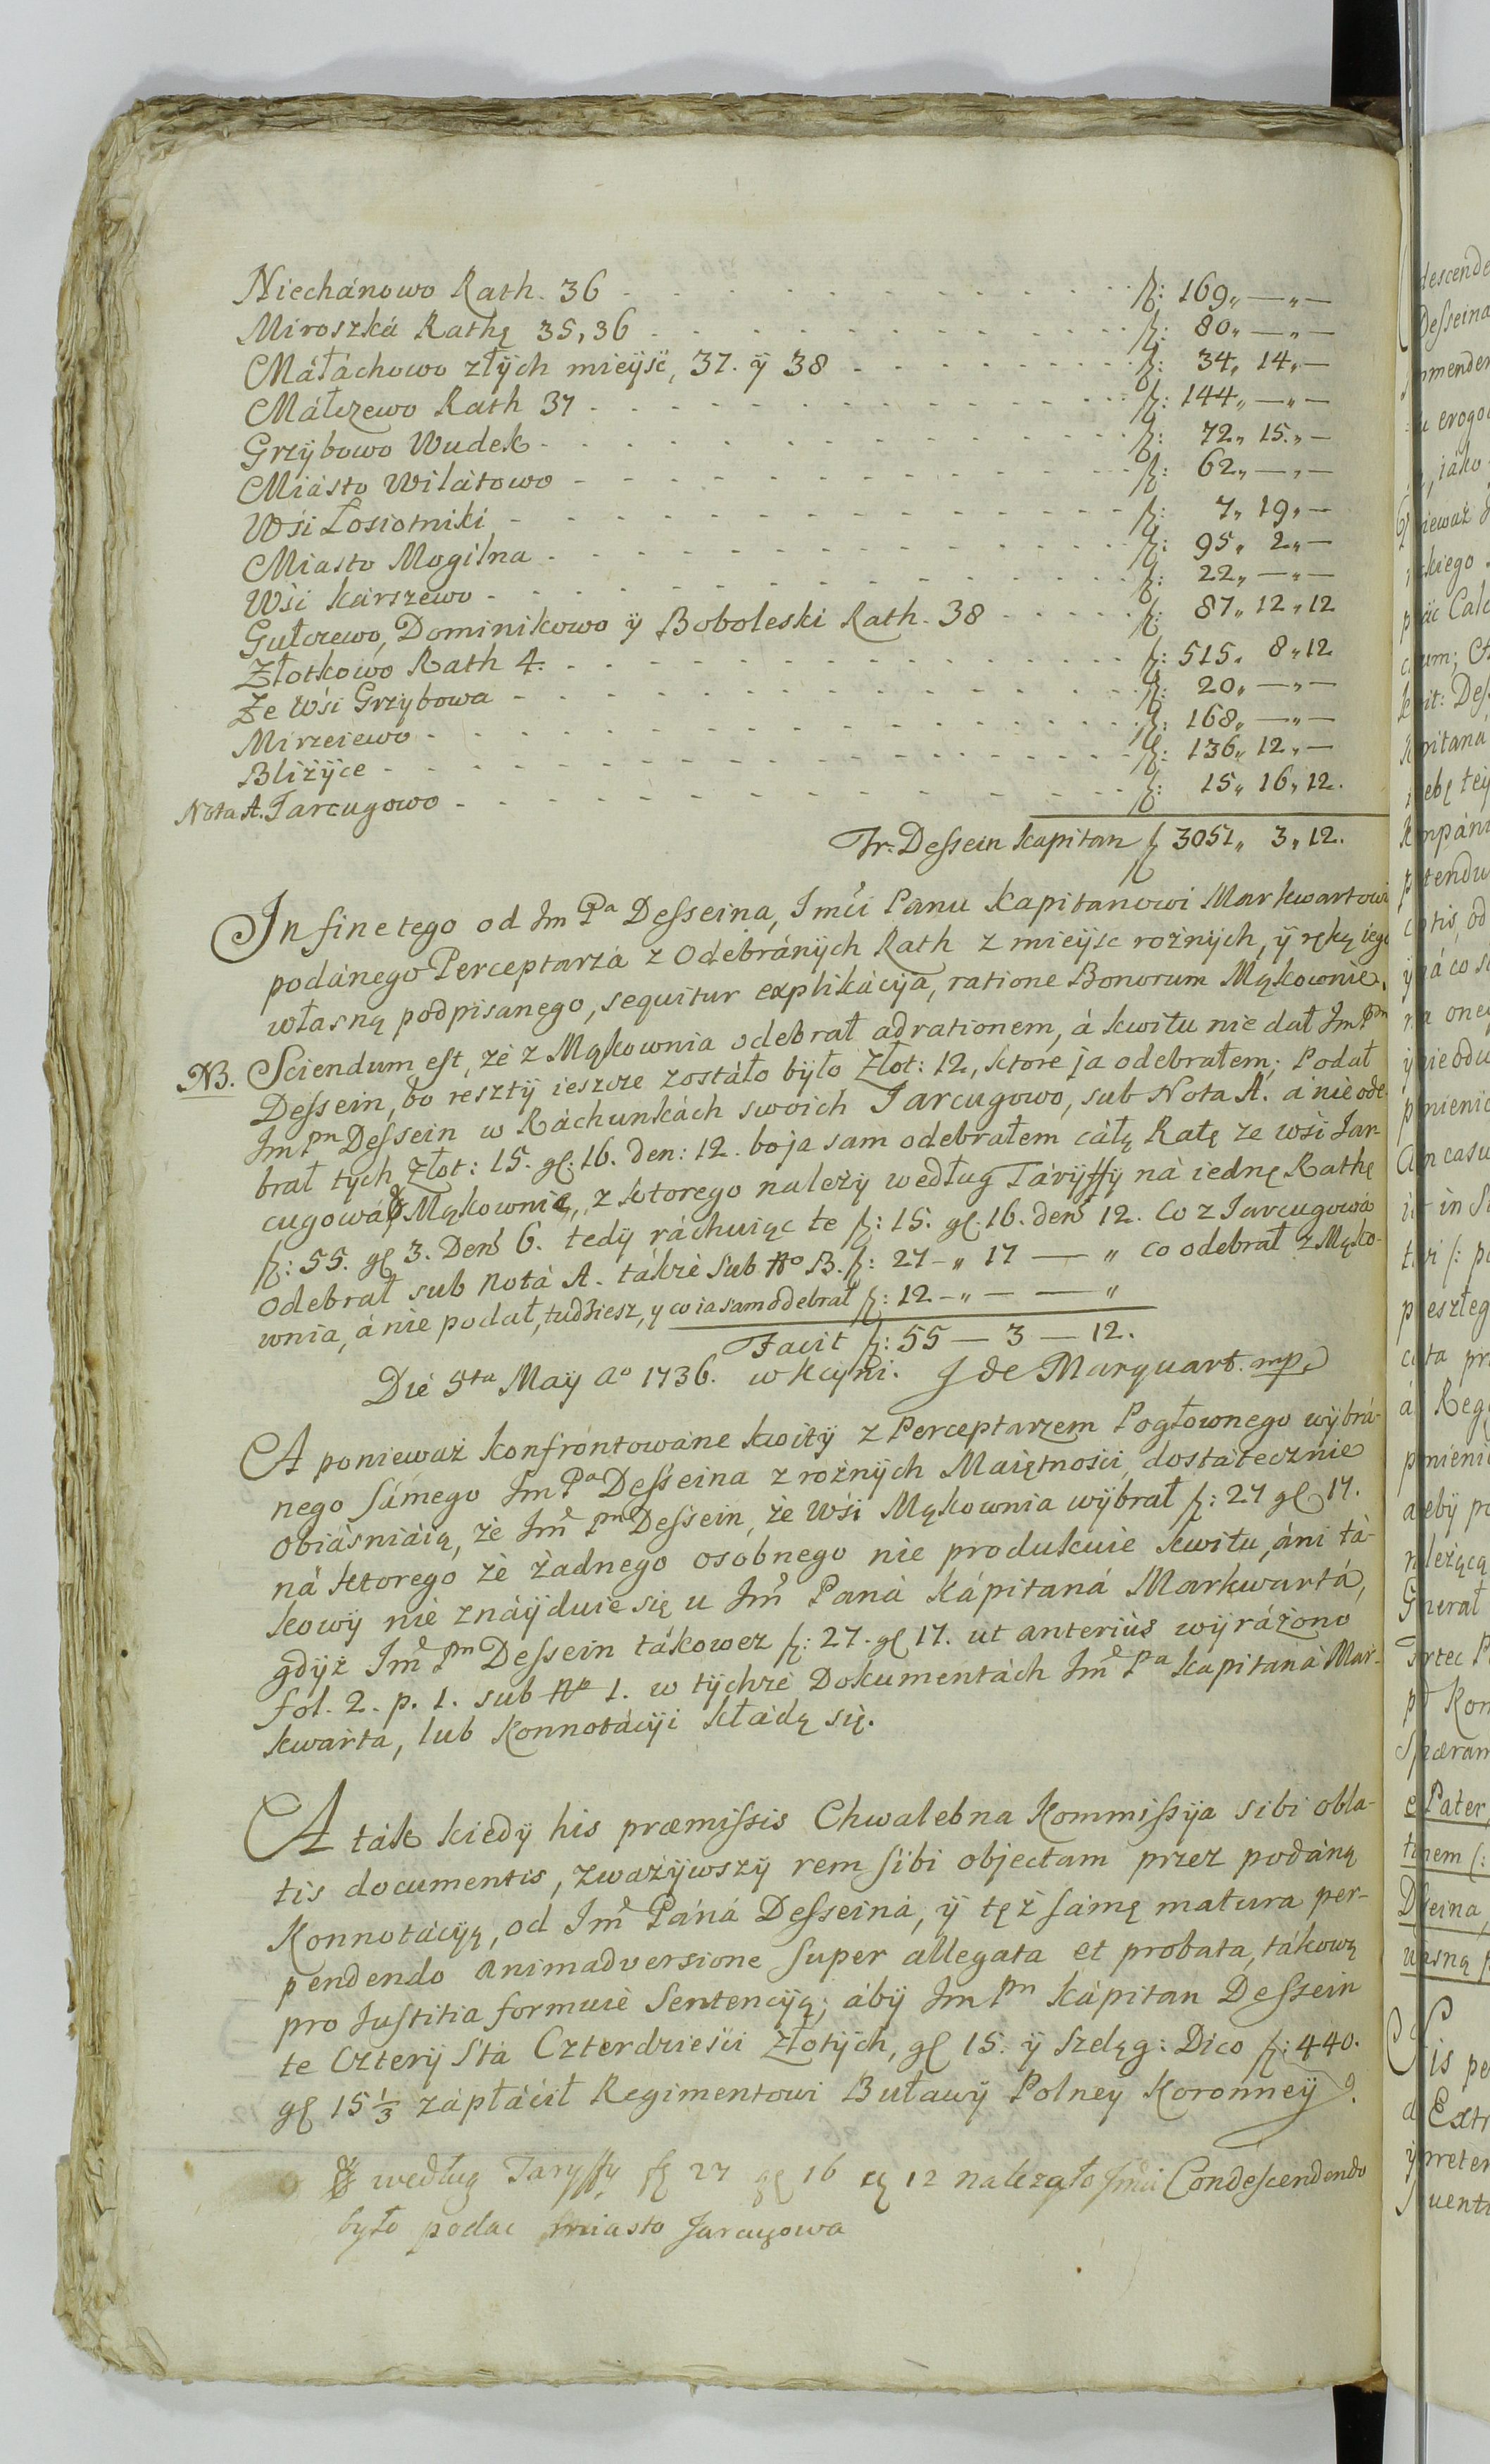 Niechánowo Rath. 36 - - - - - - - - - - fl: 169„ — „ —
Miroszká Rathę 35, 36 - - - - - - - - - - fl: 80„ — „ —
Máłáchowo złÿch mieÿsć, 37. ÿ 38 - - - - - - - fl: 34„ 14„ —
Máłczewo Rath 37 - - - - - - - - - - fl: 144„ — „ —
Grzÿbowo Wudek - - - - - - - - - - fl: 72„ 15.„ —
Miásto Wilátowo - - - - - - - - - - fl: 62„ — „ —
Wśi Łosiotniki - - - - - - - - - - fl: 7„ 19„ —
Miasto Mogilna - - - - - - - - - - fl: 95„ 2„ —
Wśi Karszewo - - - - - - - - - - fl: 22„ — „ —
Gułczewo, Dominikowo ÿ Boboleski Rath. 38 - - - - - fl: 87„ 12„ 12
Złotkowo Rath 4. - - - - - - - - - - fl: 515„ 8„ 12
Ze Wśi Grzybowa - - - - - - - - - - fl: 20„ — „ —
Mirzeiewo - - - - - - - - - - fl: 168„ — „ —
Bliżÿce - - - - - - - - - - fl: 136„ 12„ —
Nota A. Jarcugowo - - - - - - - - - - fl: 15„ 16„ 12.
Fr. Dessein Kapitan fl 3051„ 3„ 12.
In fine tego od Im Pa Desseina, Imći Panu Kapitanowi Markwartowi
podánego Perceptarzá z Odebránÿch Rath z mieÿsc rożnÿch, ÿ ręką iego
własną podpisanego, sequitur explikácÿa, ratione Bonorum Mąkownie.
NB. Sciendum est, że z Mąkownia odebrał ad rationem, á kwitu nie dał Im Pan
Dessein, bo resztÿ ieszcze zostáło bÿło Złot: 12, ktore ja odebrałem; Podał
Im Pn Dessein w Ráchunkách swoich Jarcugowo, sub Nota A. á nie ode-
brał tÿch Złot: 15. gl. 16. den: 12. bo ja sam odebrałem cáłą Ratę ze wśi Jar-
cugowá Mąkownie, z ktorego należÿ według Tárÿffÿ ná iednę Rathę
fl: 55. gl 3. Den 6. tedÿ ráchuiąc te fl: 15. gl. 16. den 12. Co z Jarcugowá
Odebrał sub Notá A. tákże sub No B. fl: 27 - „ 17 — „ co odebrał z Mąko-
wnia, á nie podał, tudziesz, y co ia sam odebrał fl: 12 - „ — — „
Facit fl: 55 — 3 — 12.
Die 5ta Maÿ Ao 1736. w Kcÿni. J de Marquart. mp.
A ponieważ konfrontowáne kwitÿ z Perceptarzem Pogłownego wÿbrá-
nego sámego Im Pa Desseina z rożnÿch Maiętnośći, dostátecznie
obiásniáią, że Im Pn Dessein, że Wśi Mąkownia wÿbrał fl: 27 gl 17.
ná ktorego że żadnego osobnego nie produkuie kwitu, áni tá-
kowÿ nie znáÿduie się u Im Paná Kápitaná Markwartá,
gdÿż Im Pn Dessein tákowez fl: 27. gl 17. ut anterius wÿrážono
fol. 2. p. 1. sub No 1. w tÿchże Dokumentách Im Pa Kapitaná Mar-
kwarta, lub Konnotácÿi kłádą się.
A ták kiedÿ his præmissis Chwalebna Kommissÿa sibi obla-
tis documentis, zważÿwszÿ rem sibi objectam przez podáną
Konnotácÿą, od Im Páná Desseiná, ÿ tęż sámę matura per-
pendendo animadversione super allegata et probata, tákową
pro Justitia formuie Sentencÿą; ábÿ Im Pn Kápitan Dessein
te Czterÿ Stá Czterdzieśći Złotÿch, gl 15. ÿ Szeląg: Dico fl: 440.
gl 15 1/3 zápłáćił Regimentowi Buławÿ Polneÿ Koronneÿ.
według Taryffy fl 27 gl 16 12 nalezało Imći Condescendendo
było podac miasto Jarcugowa